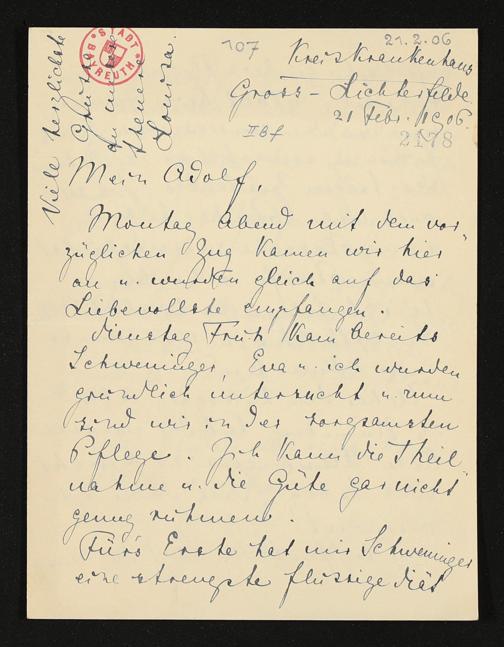 Viele herzlichste
Grüsse
an unsere
theuere
Louisa.
STADT
BAYREUTH
107
21.2.06
Kreiskrankenhaus
Gross-Lichterfelde
21 Febr. 1906.
II Bf
2178
Mein Adolf,
Montag Abend mit dem vor-
züglichen Zug kamen wir hier
an u. wurden gleich auf das
Liebevollste empfangen.
Dienstag Früh kam bereits
Schweninger, Eva u. ich wurden
gründlich untersucht u. nun
sind wir in der sorgsamsten
Pflege. Ich kann die Theil-
nahme u. die Güte gar nicht
genug rühmen.
Für's Erste hat mir Schweninger
eine strengste flüssige Diät